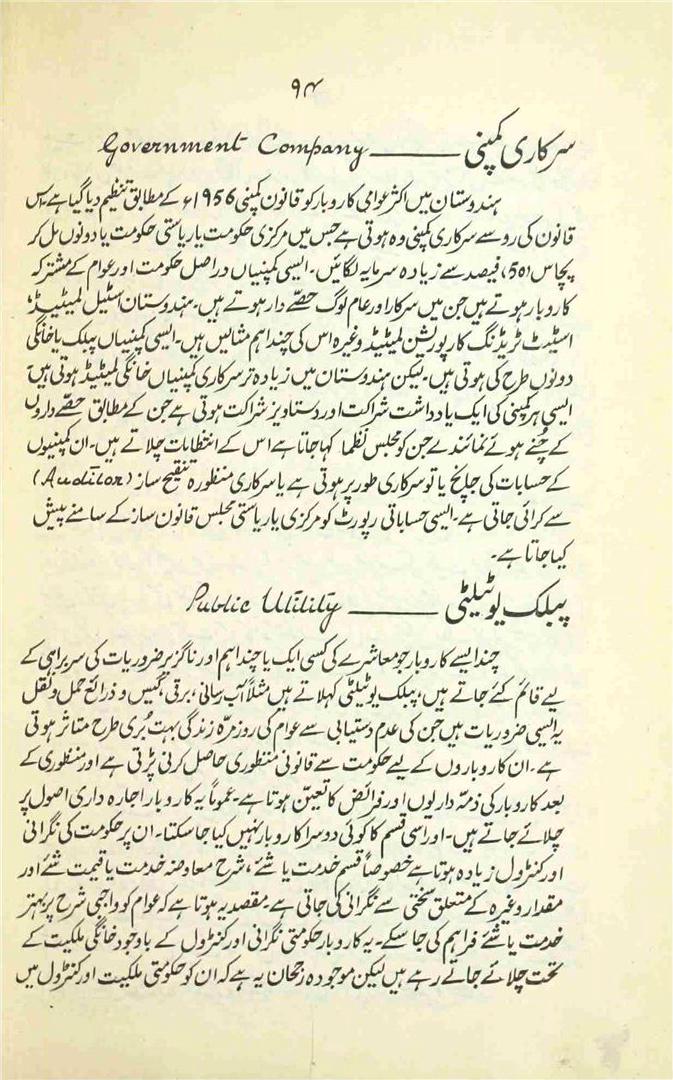 ۹۴
سرکاری کمپنی ——— Government Company
ہندوستان میں اکثر عوامی کاروبار کو قانون کمپنی 1956ء کے مطابق تنظیم دیا گیا ہے۔ اس
قانون کی رو سے سرکاری کمپنی وہ ہوتی ہے جس میں مرکزی حکومت یا ریاستی حکومت یا دونوں مل کر
پچاس (50) فیصد سے زیادہ سرمایہ لگائیں۔ ایسی کمپنیاں دراصل حکومت اور عوام کے مشترکہ
کاروبار ہوتے ہیں جن میں سرکار اور عام لوگ حصّے دار ہوتے ہیں۔ ہندوستان اسٹیل لمیٹیڈ،
اسٹیٹ ٹریڈنگ کارپوریشن لمیٹیڈ وغیرہ اس کی چند اہم مثالیں ہیں۔ ایسی کمپنیاں پبلک یا خانگی
دونوں طرح کی ہوتی ہیں۔ لیکن ہندوستان میں زیادہ تر سرکاری کمپنیاں خانگی لمیٹیڈ ہوتی ہیں۔
ایسی ہر کمپنی کی ایک یادداشت شراکت اور دستاویز شراکت ہوتی ہے جن کے مطابق حصّے داروں
کے چُنے ہوئے نمائندے جن کو مجلس نظما کہا جاتا ہے اس کے انتظامات چلاتے ہیں۔ ان کمپنیوں
کے حسابات کی جانچ یا تو سرکاری طور پر ہوتی ہے یا سرکاری منظورہ تنقیح ساز (Auditor)
سے کرائی جاتی ہے۔ ایسی حساباتی رپورٹ کو مرکزی یا ریاستی مجلس قانون ساز کے سامنے پیش
کیا جاتا ہے۔
پبلک یوٹیلٹی ——— Public Utility
چند ایسے کاروبار جو معاشرے کی کسی ایک یا چند اہم اور ناگزیر ضروریات کی سربراہی کے
لیے قائم کئے جاتے ہیں، پبلک یوٹیلٹی کہلاتے ہیں مثلاً آب رسانی، برقی، گیس و ذرائع حمل و نقل
یہ ایسی ضروریات ہیں جن کی عدم دستیابی سے عوام کی روز مرّہ زندگی بہت بُری طرح متاثر ہوتی
ہے۔ ان کاروباروں کے لیے حکومت سے قانونی منظوری حاصل کرنی پڑتی ہے اور منظوری کے
بعد کاروبار کی ذمّہ داریوں اور فرائض کا تعیّن ہوتا ہے۔ عموماً یہ کاروبار اجارہ داری اصول پر
چلائے جاتے ہیں۔ اور اسی قسم کا کوئی دوسرا کاروبار نہیں کیا جا سکتا۔ ان پر حکومت کی نگرانی
اور کنٹرول زیادہ ہوتا ہے خصوصاً قسم خدمت یا شئے، شرح معاوضہ خدمت یا قیمت شئے اور
مقدار وغیرہ کے متعلق سختی سے نگرانی کی جاتی ہے۔ مقصد یہ ہوتا ہے کہ عوام کو واجبی شرح پر بہتر
خدمت یا شئے فراہم کی جا سکے۔ یہ کاروبار حکومتی نگرانی اور کنٹرول کے باوجود خانگی ملکیت کے
تحت چلائے جاتے رہے ہیں لیکن موجودہ رجحان یہ ہے کہ ان کو حکومتی ملکیت اور کنٹرول میں